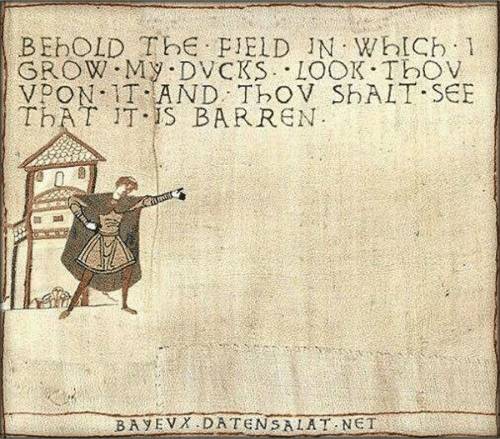 BEhOLD ThE · FIELD IN · WhICh · I
GROW · MY · DVCKS · · LOOK · ThOV
VPON · IT · AND · ThOV ShALT · SEE
ThAT IT · IS BARREN ·
BAYEVX · DATENSALAT · NET